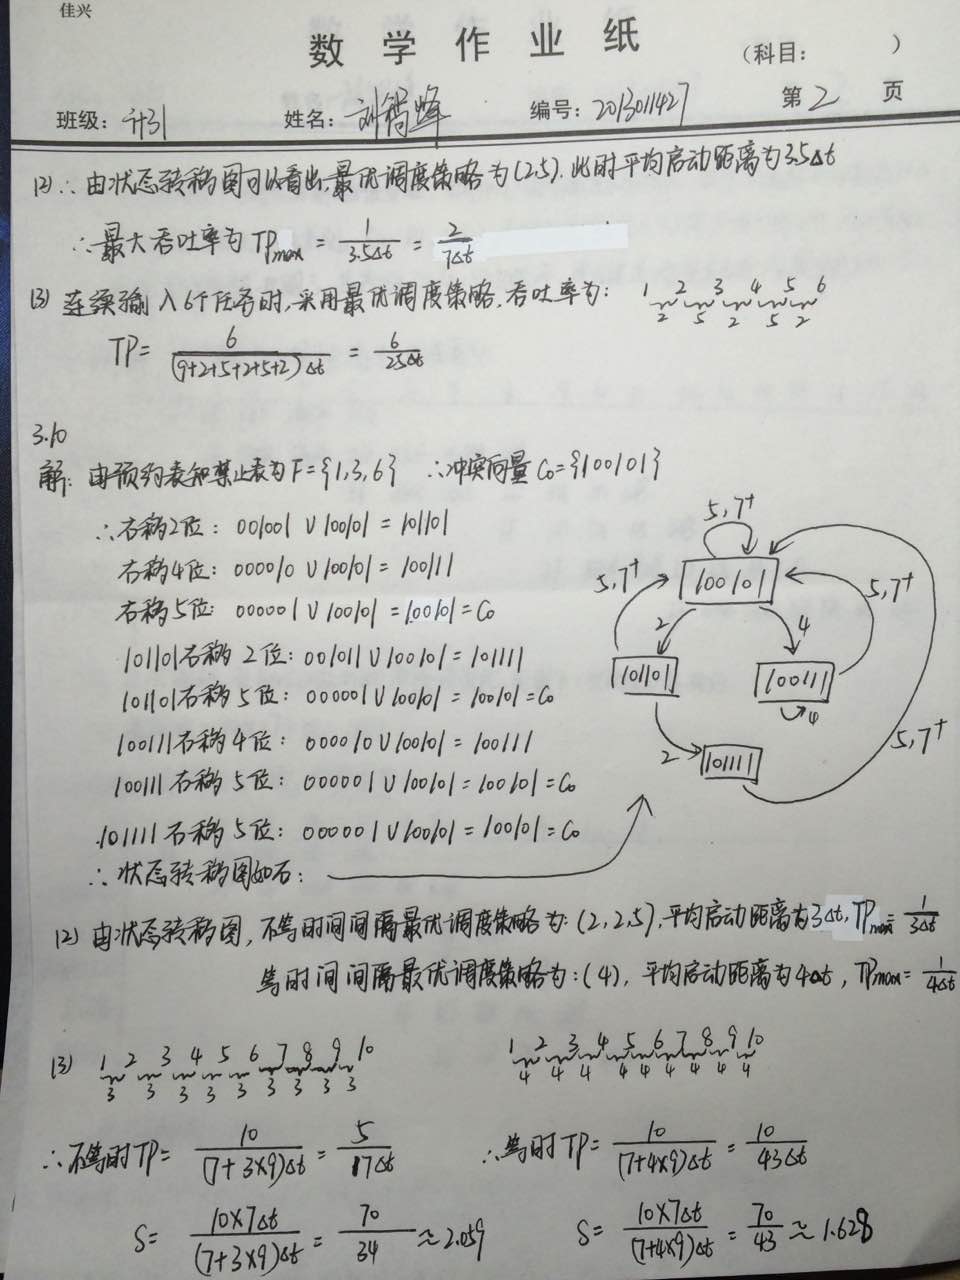 佳兴
数学作业纸
(科目: )
班级: 计31 姓名: 编号: 2013011427 第2页
(2) ∴由状态转移图可以看出,最优调度策略为(2,5).此时平均启动距离为3.5Δt
∴最大吞吐率为TPmax = 1/3.5Δt = 2/7Δt
(3) 连续输入6个任务时,采用最优调度策略,吞吐率为: 1 2 3 4 5 6
2 5 2 5 2
TP= 6/(9+2+5+2+5+2)Δt = 6/25Δt
3.10
解: 由预约表知禁止表为F={1,3,6} ∴冲突向量C₀={100101}
∴右移2位: 001001 ∪ 100101 = 101101
右移4位: 000010 ∪ 100101 = 100111
右移5位: 000001 ∪ 100101 = 100101 = C₀
101101右移2位: 001011 ∪ 100101 = 101111
101101右移5位: 000001 ∪ 100101 = 100101 = C₀
100111右移4位: 000010 ∪ 100101 = 100111
100111右移5位: 000001 ∪ 100101 = 100101 = C₀
101111右移5位: 000001 ∪ 100101 = 100101 = C₀
∴状态转移图如右:
5,7⁺
5,7⁺ 100101 5,7⁺
2 4
101101 100111
4
2 101111 5,7⁺
(2) 由状态转移图,不等时间间隔最优调度策略为:(2,2,5),平均启动距离为3Δt,TPmax= 1/3Δt
等时间间隔最优调度策略为:(4),平均启动距离为4Δt,TPmax= 1/4Δt
(3) 1 2 3 4 5 6 7 8 9 10 1 2 3 4 5 6 7 8 9 10
3 3 3 3 3 3 3 3 3 4 4 4 4 4 4 4 4 4
∴不等时TP= 10/(7+3×9)Δt = 5/17Δt ∴等时TP= 10/(7+4×9)Δt = 10/43Δt
S= 10×7Δt/(7+3×9)Δt = 70/34 ≈2.059 S= 10×7Δt/(7+4×9)Δt = 70/43 ≈1.628